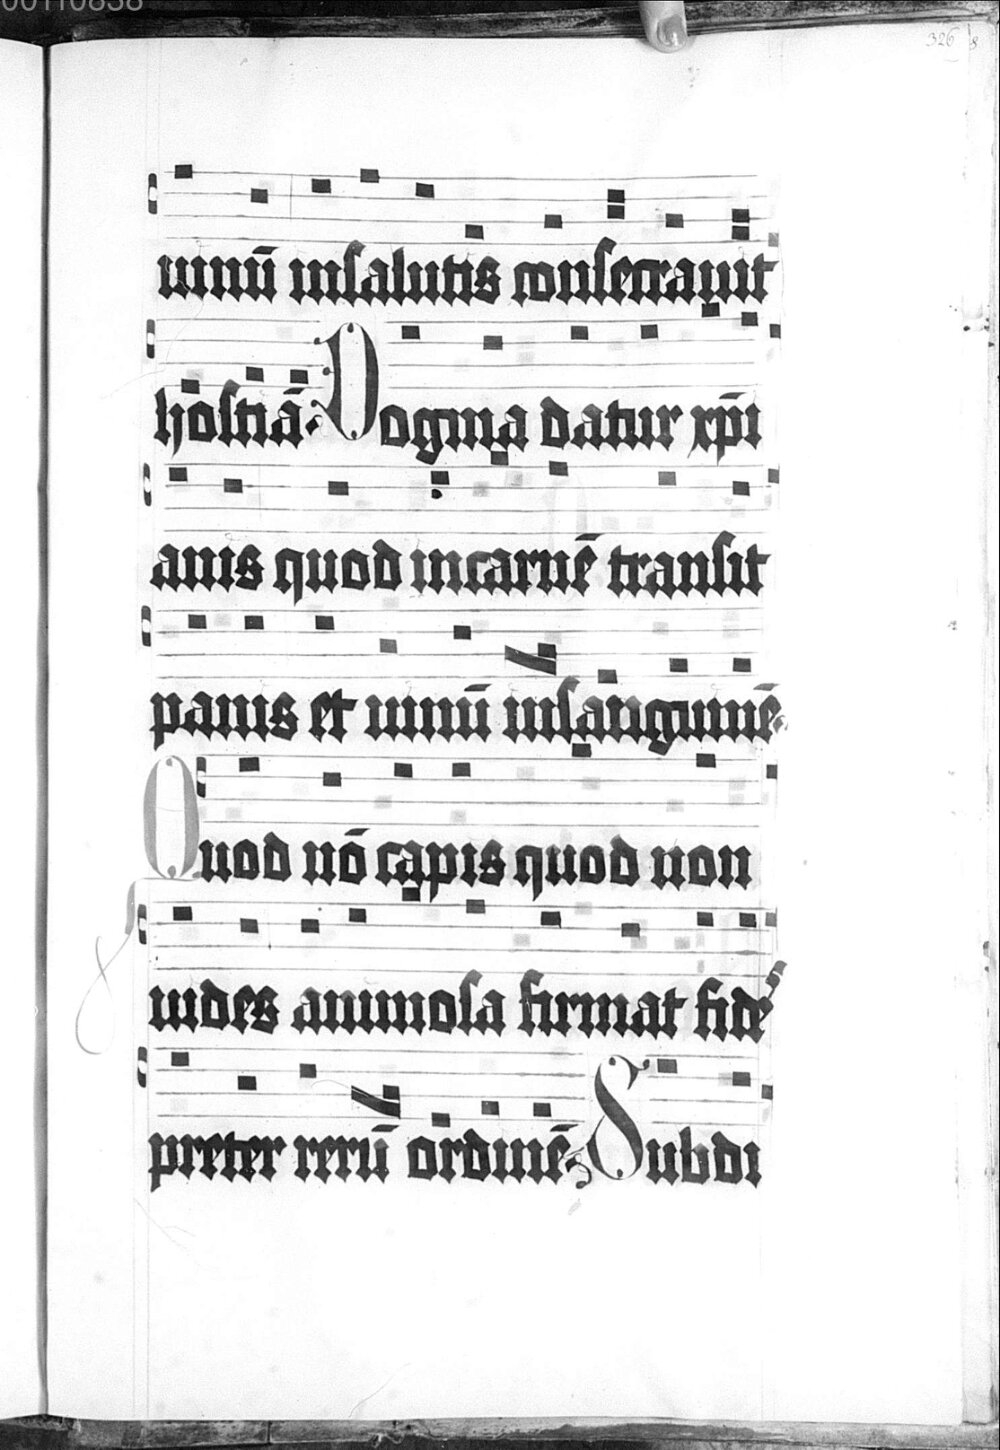 00110838
326
uinū insalutis consecrauit
hostiā. Dogma datur xp̄i
anis quod incarnē transit
panis et uinū insanguinē.
Quod nō capis quod non
uides animosa firmat fidēs
preter rerū ordinē. Subdi